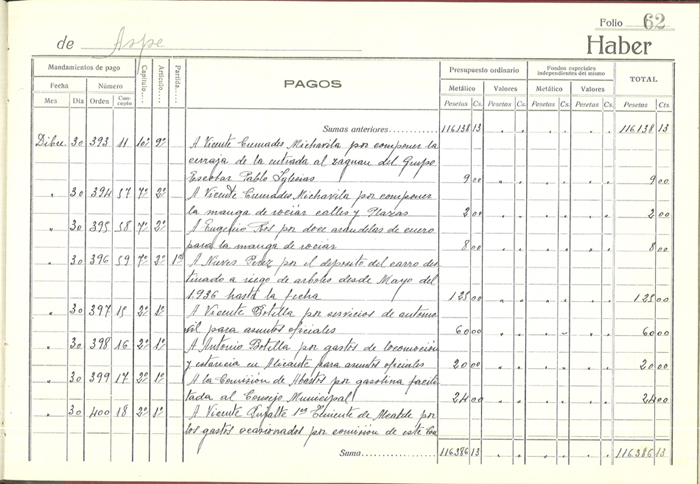 Folio 62
de Aspe Haber
Mandamientos de pago Capítulo.... Artículo.... Partida.... PAGOS Presupuesto ordinario Fondos especiales independientes del mismo TOTAL
Fecha Número Metálico Valores Metálico Valores
Mes Día Orden Concepto Pesetas Cs. Pesetas Cs. Pesetas Cs. Pesetas Cs. Pesetas Cts.
Sumas anteriores 116.138 13 " " " " " " 116.138 13
Dibre. 30 393 11 10º 9º A Vicente Cumades Michavila por componer la
cerraja de la entrada al zaguan del Grupo
Escolar Pablo Iglesias 9 00 " " " " " " 9 00
" 30 394 57 7º 2º A Vicente Cumades Michavila por componer
la manga de rociar calles y Plazas 2 00 " " " " " " 2 00
" 30 395 58 7º 2º A Eugenio Ros por doce arandelas de cuero
para la manga de rociar 8 00 " " " " " " 8 00
" 30 396 59 7º 2º 1º A Nieves Perez por el deposito del carro des
tinado a riego de arboles desde Mayo del
1.936 hasta la fecha 125 00 " " " " " " 125 00
" 30 397 15 2º 1º A Vicente Botella por servicios de automo
vil para asuntos oficiales 60 00 " " " " " " 60 00
" 30 398 16 2º 1º A Antonio Botella por gastos de locomoción
y estancia en Alicante para asuntos oficiales 20 00 " " " " " " 20 00
" 30 399 17 2º 1º A la Comisión de Abastos por gasolina facili
tada al Consejo Municipal 24 00 " " " " " " 24 00
" 30 400 18 2º 1º A Vicente 1er Teniente de Alcalde por
los gastos ocasionados por comision de este Con
Suma 116.386 13 " " " " " " 116.386 13